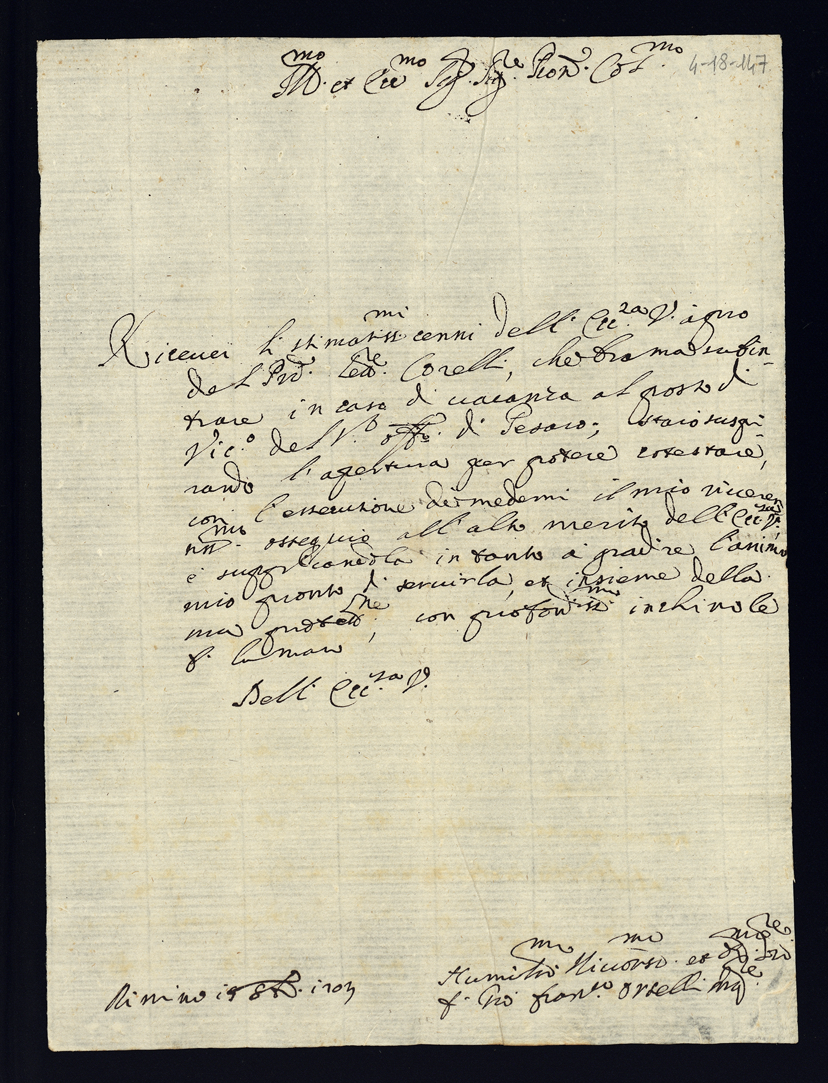 Ill.mo et Ecc.mo Sig. Sig.re Pron. Col.mo
4-18-147
Riceuei li stimatiss.mi cenni dell' Ecc.za V. à pro
del Prd. Lett.re Corelli, che brama subin-
trare in caso di uacanza al posto di
Vic.o del S.to Off.o di Pesaro; starò suspi-
rando l'apertura per potere contestare,
con l'essecutione de medemi il mio riueren-
tiss.mo ossequio all'alto merito dell' Ecc.za V.,
e supplicandola in tanto à gradire l'animo
mio pronto di seruirla, et insieme della
sua protett.ne, con profondiss.mo inchino le
b. le mani
Dell' Ecc.za V.
Rimino 1703
Humil.mo Diuot.mo et Ser.re
f. Gio Fran.co Orselli